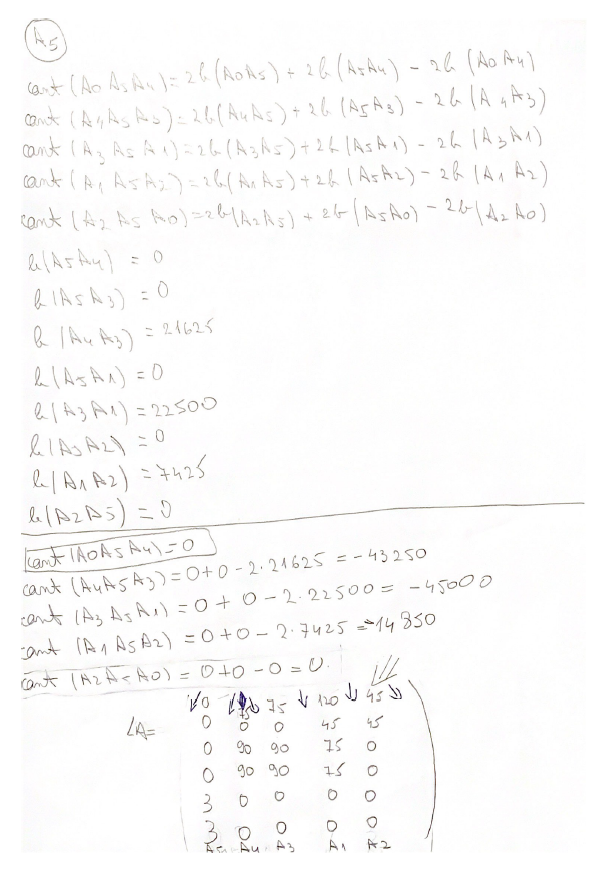 A5
cant (A0 A5 A4) = 2b (A0A5) + 2b (A5A4) - 2b (A0A4)
cant (A4 A5 A3) = 2b (A4A5) + 2b (A5A3) - 2b (A4A3)
cant (A3 A5 A1) = 2b (A3A5) + 2b (A5A1) - 2b (A3A1)
cant (A1 A5 A2) = 2b (A1A5) + 2b (A5A2) - 2b (A1A2)
cant (A2 A5 A0) = 2b (A2A5) + 2b (A5A0) - 2b (A2A0)
b (A5A4) = 0
b (A5A3) = 0
b (A4A3) = 21625
b (A5A1) = 0
b (A3A1) = 22500
b (A5A2) = 0
b (A1A2) = 7425
b (A2A5) = 0
cant (A0A5A4) = 0
cant (A4A5A3) = 0+0-2.21625 = -43250
cant (A3A5A1) = 0+0-2.22500 = -45000
cant (A1A5A2) = 0+0-2.7425 = -14850
cant (A2A5A0) = 0+0-0=0.
0 75 75 120 45
LA= 0 0 0 45 45
0 90 90 75 0
0 90 90 75 0
3 0 0 0 0
3 0 0 0 0
A5 A4 A3 A1 A2